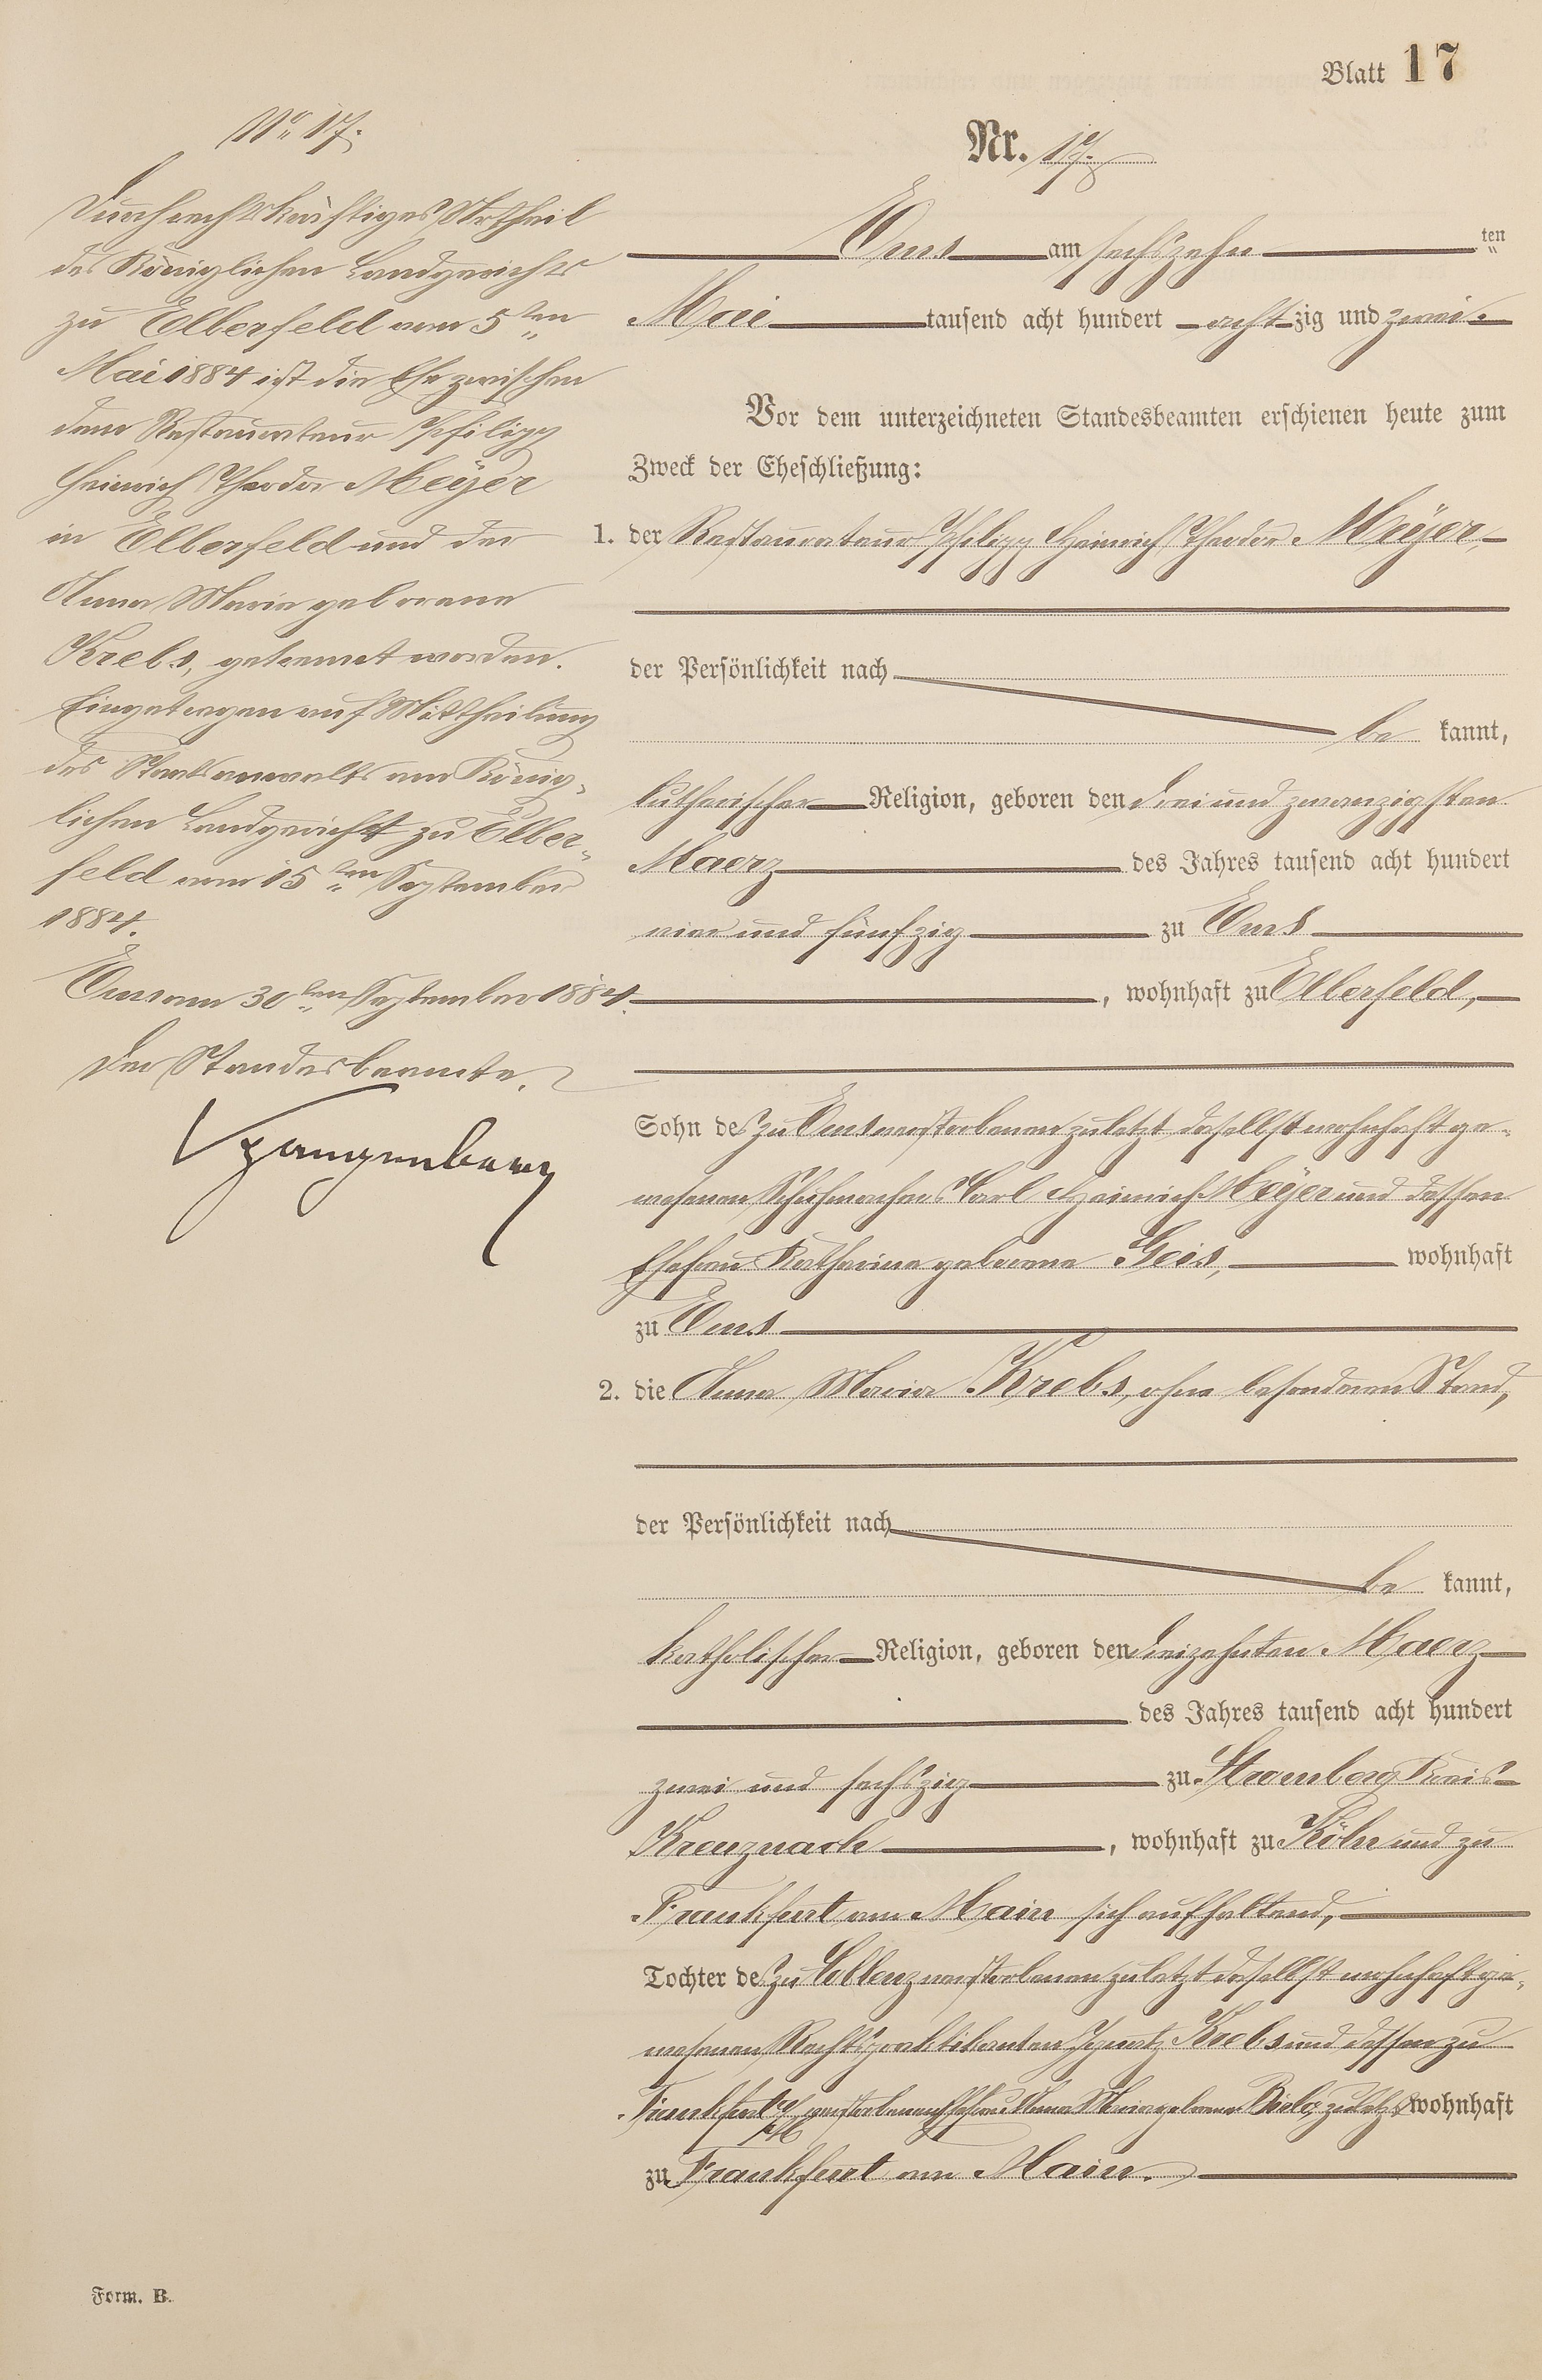 Blatt 17
No 17.
Durch rechtskräftiges Urtheil
des Königlichen Landgerichts
zu Elberfeld vom 5ten
Mai 1884 ist die Ehe zwischen
dem Restaurateur Philipp
Heinrich Theodor Meÿer
in Elberfeld und der
Anna Maria geborene
Krebs, getrennt worden.
Eingetragen auf Mittheilung
des Staatsanwalts am König-
lichen Landgericht zu Elber-
feld vom 15ten September
1884.
Ems am 30ten September 1884.
Der Standesbeamte.
Nr. 17.
Ems am sechszehn ten
Mai tausend acht hundert achtzig und zwei.
Vor dem unterzeichneten Standesbeamten erschienen heute zum
Zweck der Eheschließung:
1. der Restaurateur Philipp Heinrich Theodor Meÿer,
der Persönlichkeit nach
be kannt,
lutherischer Religion, geboren den drei und zwanzigsten
Maerz des Jahres tausend acht hundert
vier und fünfzig zu Ems
, wohnhaft zu Elberfeld,
Sohn des zu Ems verstorbenen zuletzt daselbst wohnhaft ge-
wesenen Schuhmachers Carl Heinrich Meÿer und dessen
Ehefrau Katharina geborene Geis, wohnhaft
zu Ems
2. die Anna Maria Krebs, ohne besonderen Stand,
der Persönlichkeit nach
be kannt,
katholischer Religion, geboren den dreizehnten Maerz
des Jahres tausend acht hundert
zwei und sechszig zu Stromberg Kreis
Kreuznach, wohnhaft zu Köln und zu
Frankfurt am Main sich aufhaltend,
Tochter des zu Coblenz verstorbenen zuletzt daselbst wohnhaft ge-
wesenen Rechtspraktikanten Ignatz Krebs und dessen zu
Frankfurt a/M verstorbenen Ehefrau Anna Maria geborene zuletzt wohnhaft
zu Frankfurt am Main.
Form. B.